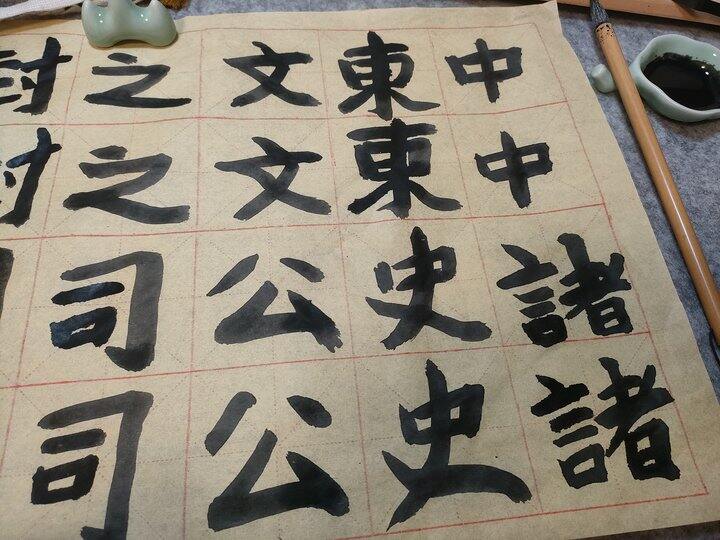 中中諸諸
東東史史
文文公公
之之司司
封封